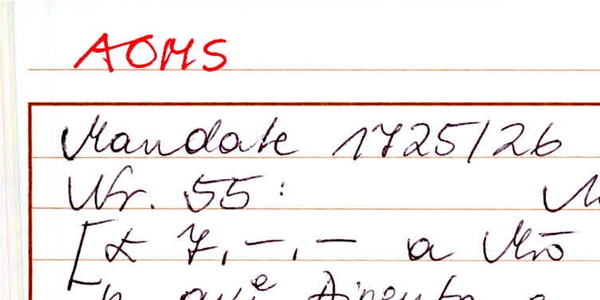 AOMS
Mandate 1725/26
Nr. 55:
[£ 7,–,– a Mrō